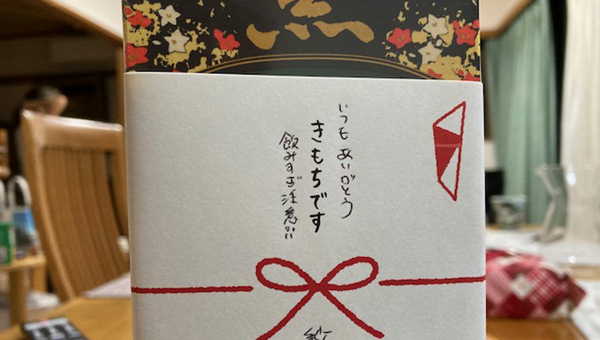 いつもありがとう
きもちです
飲みすぎ注意